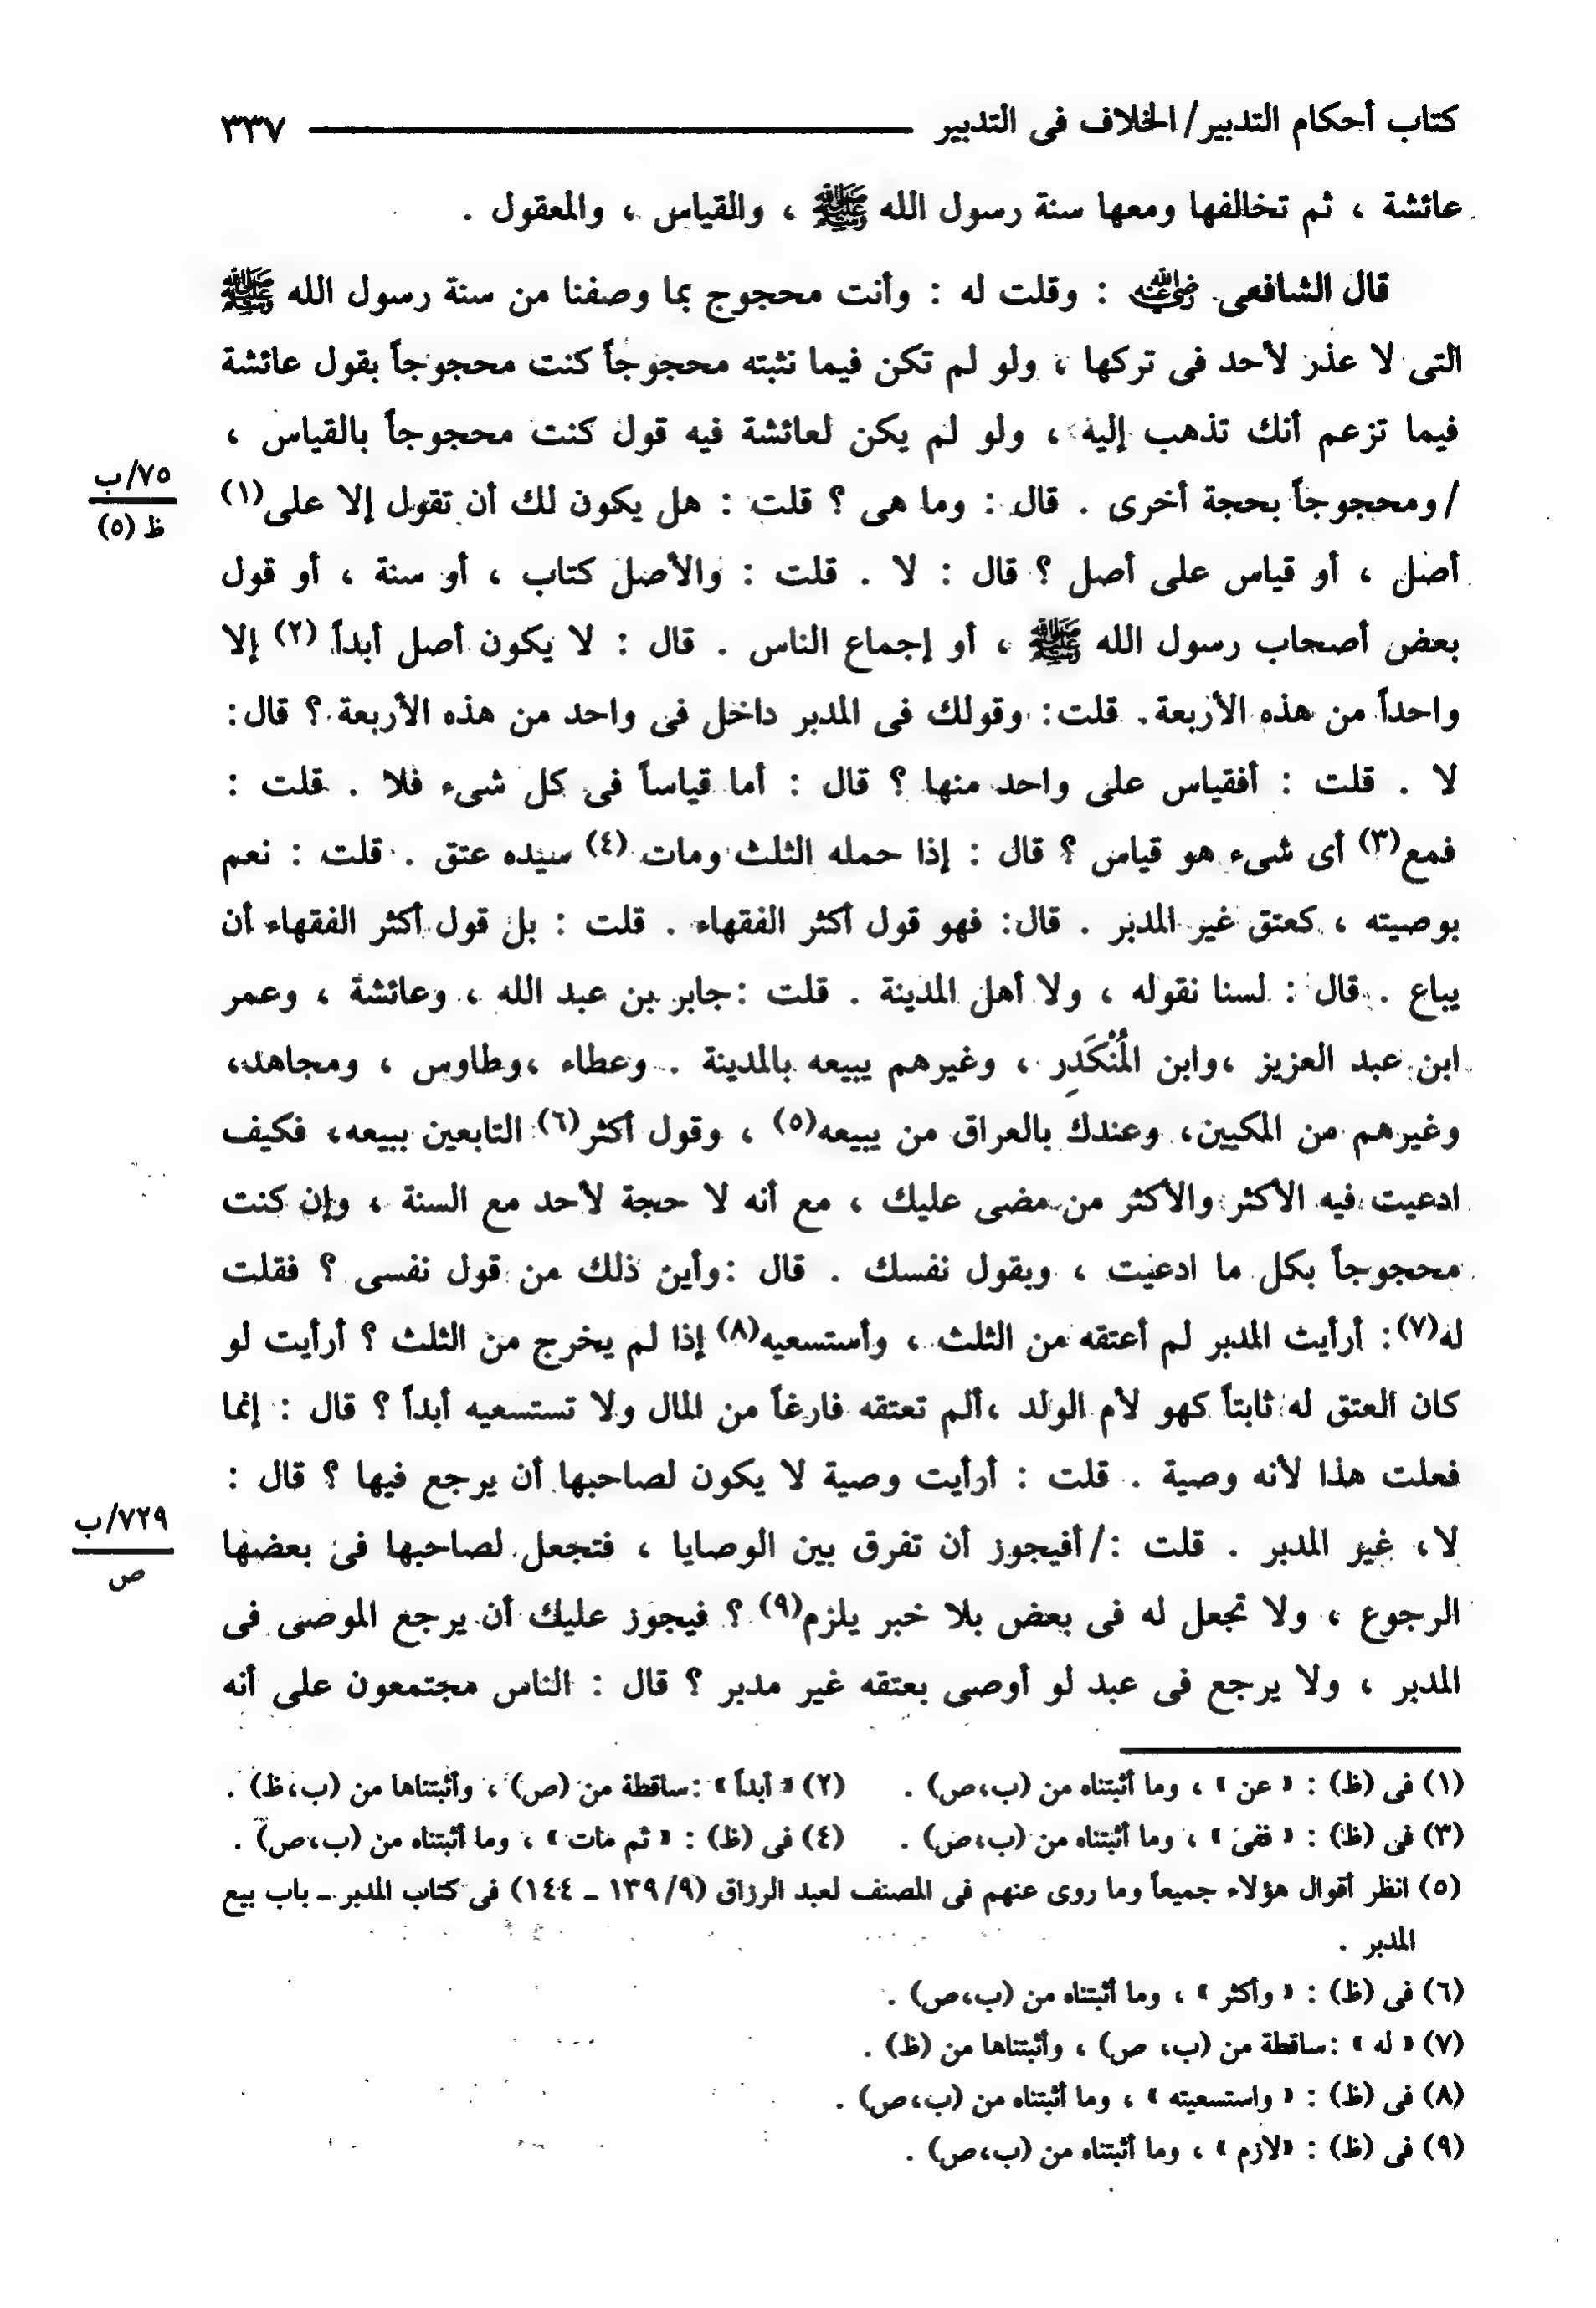 كتاب أحكام التدبير/الخلاف فى التدبير ٣٣٧
عائشة ، ثم تخالفها ومعها سنة رسول الله ﷺ ، والقياس ، والمعقول .
قال الشافعى رضي الله عنه : وقلت له : وأنت محجوج بما وصفنا من سنة رسول الله ﷺ
التى لا عذر لأحد فى تركها ، ولو لم تكن فيما نثبته محجوجاً كنت محجوجاً بقول عائشة
فيما تزعم أنك تذهب إليه ، ولو لم يكن لعائشة فيه قول كنت محجوجاً بالقياس ،
٧٥/ب
ظ (٥)
/ومحجوجاً بحجة أخرى . قال : وما هى ؟ قلت : هل يكون لك أن تقول إلا على(١)
أصل ، أو قياس على أصل ؟ قال : لا . قلت : والأصل كتاب ، أو سنة ، أو قول
بعض أصحاب رسول الله ﷺ ، أو إجماع الناس . قال : لا يكون أصل أبداً (٢) إلا
واحداً من هذه الأربعة. قلت: وقولك فى المدبر داخل فى واحد من هذه الأربعة ؟ قال:
لا . قلت : أفقياس على واحد منها ؟ قال : أما قياساً فى كل شىء فلا . قلت :
فمع(٣) أى شىء هو قياس ؟ قال : إذا حمله الثلث ومات (٤) سيده عتق . قلت : نعم
بوصيته ، كعتق غير المدبر . قال: فهو قول أكثر الفقهاء . قلت : بل قول أكثر الفقهاء أن
يباع . قال : لسنا نقوله ، ولا أهل المدينة . قلت :جابر بن عبد الله ، وعائشة ، وعمر
ابن عبد العزيز ،وابن المُنْكَدِر ، وغيرهم يبيعه بالمدينة . وعطاء ،وطاوس ، ومجاهد،
وغيرهم من المكيين، وعندك بالعراق من يبيعه(٥) ، وقول أكثر(٦) التابعين ببيعه، فكيف
ادعيت فيه الأكثر والأكثر من مضى عليك ، مع أنه لا حجة لأحد مع السنة ، وإن كنت
محجوجاً بكل ما ادعيت ، وبقول نفسك . قال :وأين ذلك من قول نفسى ؟ فقلت
له(٧): أرأيت المدبر لم أعتقه من الثلث ، وأستسعيه(٨) إذا لم يخرج من الثلث ؟ أرأيت لو
كان العتق له ثابتاً كهو لأم الولد ،ألم تعتقه فارغاً من المال ولا تستسعيه أبداً ؟ قال : إنما
فعلت هذا لأنه وصية . قلت : أرأيت وصية لا يكون لصاحبها أن يرجع فيها ؟ قال :
٧٢٩/ب
ص
لا، غير المدبر . قلت :/أفيجوز أن تفرق بين الوصايا ، فتجعل لصاحبها فى بعضها
الرجوع ، ولا تجعل له فى بعض بلا خبر يلزم(٩) ؟ فيجوز عليك أن يرجع الموصى فى
المدبر ، ولا يرجع فى عبد لو أوصى بعتقه غير مدبر ؟ قال : الناس مجتمعون على أنه
(١) فى (ظ) : « عن » ، وما أثبتناه من (ب،ص) . (٢) « أبداً » :ساقطة من (ص) ، وأثبتناها من (ب،ظ) .
(٣) فى (ظ) : « ففى » ، وما أثبتناه من (ب،ص) . (٤) فى (ظ) : « ثم مات » ، وما أثبتناه من (ب،ص) .
(٥) انظر أقوال هؤلاء جميعاً وما روى عنهم فى المصنف لعبد الرزاق (٩/ ١٣٩ ـ ١٤٤) فى كتاب المدبر ـ باب بيع
المدبر .
(٦) فى (ظ) : « وأكثر » ، وما أثبتناه من (ب،ص) .
(٧) « له » :ساقطة من (ب، ص) ، وأثبتناها من (ظ) .
(٨) فى (ظ) : « واستسعيته » ، وما أثبتناه من (ب،ص) .
(٩) فى (ظ) : «لازم » ، وما أثبتناه من (ب،ص) .